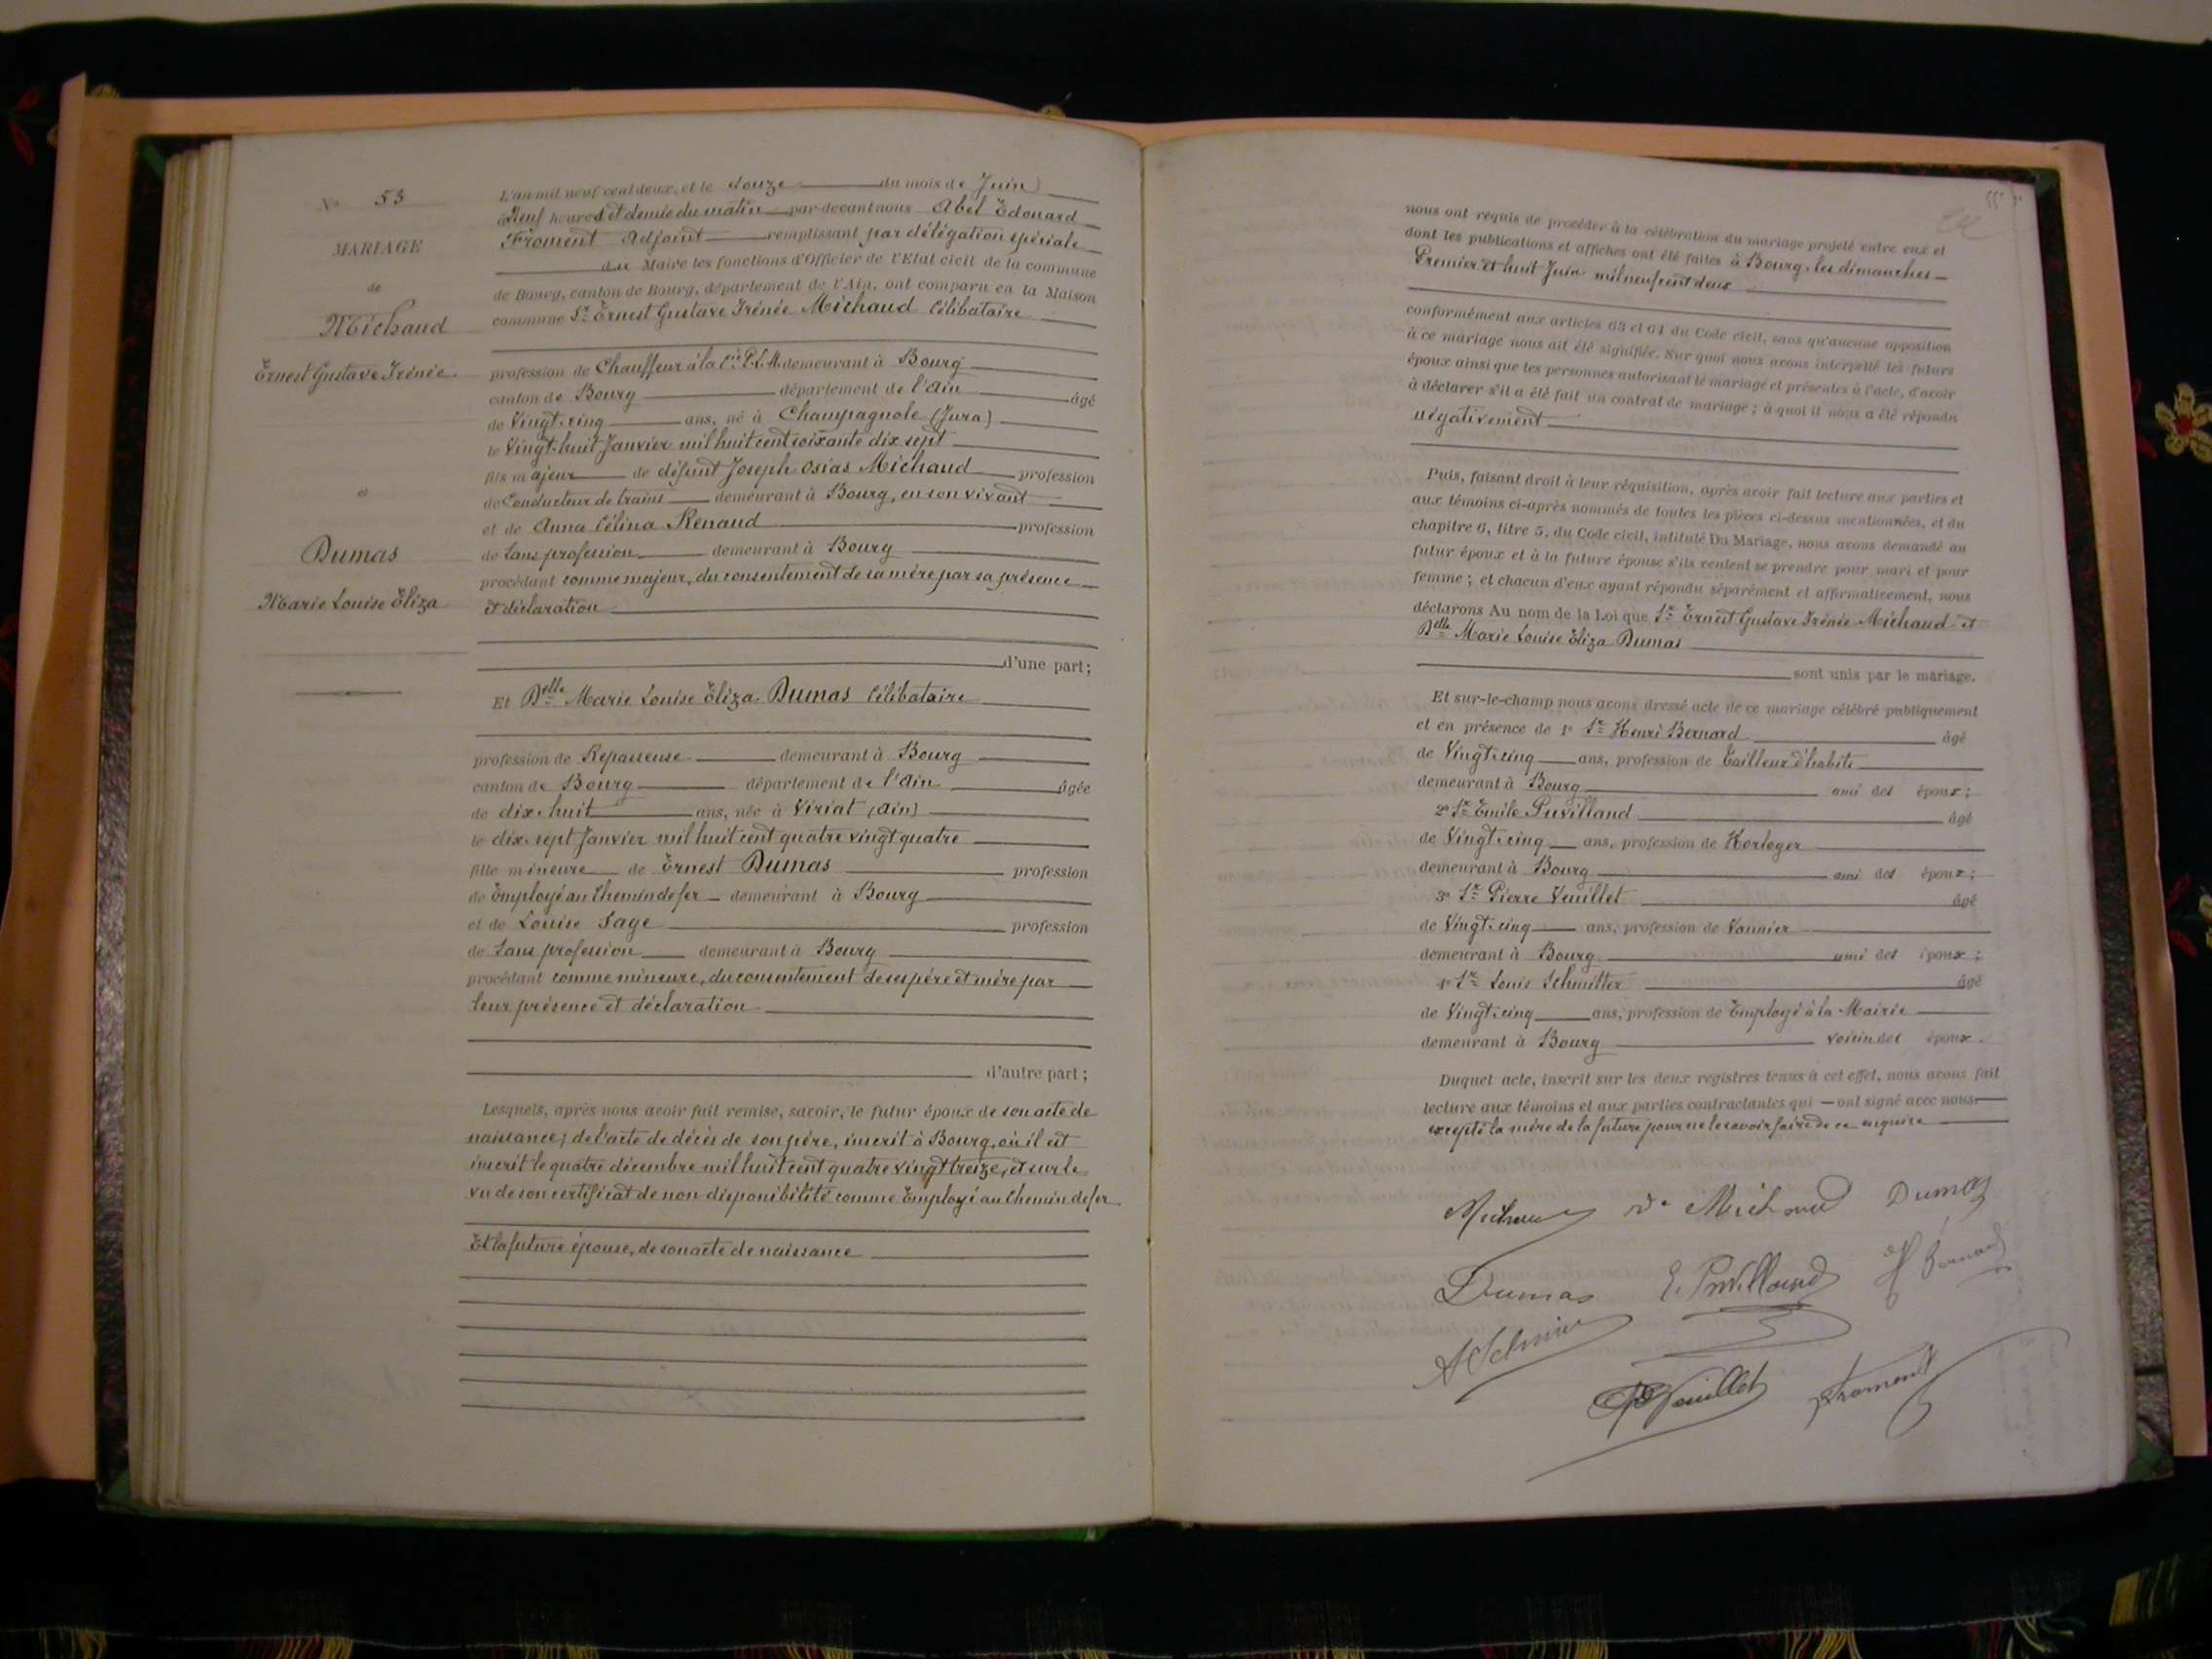 N° 53
MARIAGE
de
Michaud
Ernest Gustave Irénée
et
Dumas
Marie Louise Eliza
L'an mil neuf cent deux, et le douze du mois de Juin
à Neuf heures et demie du matin par-devant nous Abel Edouard
Froment Adjoint remplissant par délégation spéciale
du Maire les fonctions d'Officier de l'Etat civil de la commune
de Bourg, canton de Bourg, département de l'Ain, ont comparu en la Maison
commune Sr Ernest Gustave Irénée Michaud Célibataire
profession de Chauffeur à la Cie P.L.M. demeurant à Bourg
canton de Bourg département de l'Ain âgé
de Vingt-cinq ans, né à Champagnole (Jura)
le Vingt-huit Janvier mil huit cent soixante dix sept
fils majeur de défunt Joseph Osias Michaud profession
de Conducteur de trains demeurant à Bourg, en son vivant
et de Anna Célina Renaud profession
de Sans profession demeurant à Bourg
procédant comme majeur, du consentement de sa mère par sa présence
et déclaration
d'une part;
Et Delle Marie Louise Eliza Dumas Célibataire
profession de Repasseuse demeurant à Bourg
canton de Bourg département de l'Ain âgée
de dix-huit ans, née à Viriat (Ain)
le dix-sept Janvier mil huit cent quatre vingt quatre
fille mineure de Ernest Dumas profession
de Employé au Chemin de fer demeurant à Bourg
et de Louise Sage profession
de Sans profession demeurant à Bourg
procédant comme mineure, du consentement de ses père et mère par
leur présence et déclaration
d'autre part;
Lesquels, après nous avoir fait remise, savoir, le futur époux de son acte de
naissance; de l'acte de décès de son père, inscrit à Bourg, où il est
inscrit le quatre décembre mil huit cent quatre vingt treize, et sur le
vu de son certificat de non disponibilité comme Employé au Chemin de fer
Et la future épouse, de son acte de naissance
55
nous ont requis de procéder à la célébration du mariage projeté entre eux et
dont les publications et affiches ont été faites à Bourg, les dimanches
Premier et huit Juin mil neuf cent deux
conformément aux articles 63 et 64 du Code civil, sans qu'aucune opposition
à ce mariage nous ait été signifiée. Sur quoi nous avons interpellé les futurs
époux ainsi que les personnes autorisant le mariage et présentes à l'acte, d'avoir
à déclarer s'il a été fait un contrat de mariage; à quoi il nous a été répondu
négativement
Puis, faisant droit à leur réquisition, après avoir fait lecture aux parties et
aux témoins ci-après nommés de toutes les pièces ci-dessus mentionnées, et du
chapitre 6, titre 5, du Code civil, intitulé Du Mariage, nous avons demandé au
futur époux et à la future épouse s'ils veulent se prendre pour mari et pour
femme; et chacun d'eux ayant répondu séparément et affirmativement, nous
déclarons Au nom de la Loi que Sr Ernest Gustave Irénée Michaud et
Delle Marie Louise Eliza Dumas
sont unis par le mariage.
Et sur-le-champ nous avons dressé acte de ce mariage célébré publiquement
et en présence de 1° Sr Henri Bernard âgé
de Vingt-cinq ans, profession de Tailleur d'habits
demeurant à Bourg ami des époux;
2° Sr Emile Puvilland âgé
de Vingt-cinq ans, profession de Horloger
demeurant à Bourg ami des époux;
3° Sr Pierre Veuillet âgé
de Vingt-cinq ans, profession de Vannier
demeurant à Bourg ami des époux;
4° Sr Louis Schmitter âgé
de Vingt-cinq ans, profession de Employé à la Mairie
demeurant à Bourg voisin des époux.
Duquel acte, inscrit sur les deux registres tenus à cet effet, nous avons fait
lecture aux témoins et aux parties contractantes qui ont signé avec nous
excepté la mère de la future pour ne le savoir faire de ce enquise
Michaud Ve Michaud Dumas
Dumas E. Puvilland H Bernard
Veuillet Froment